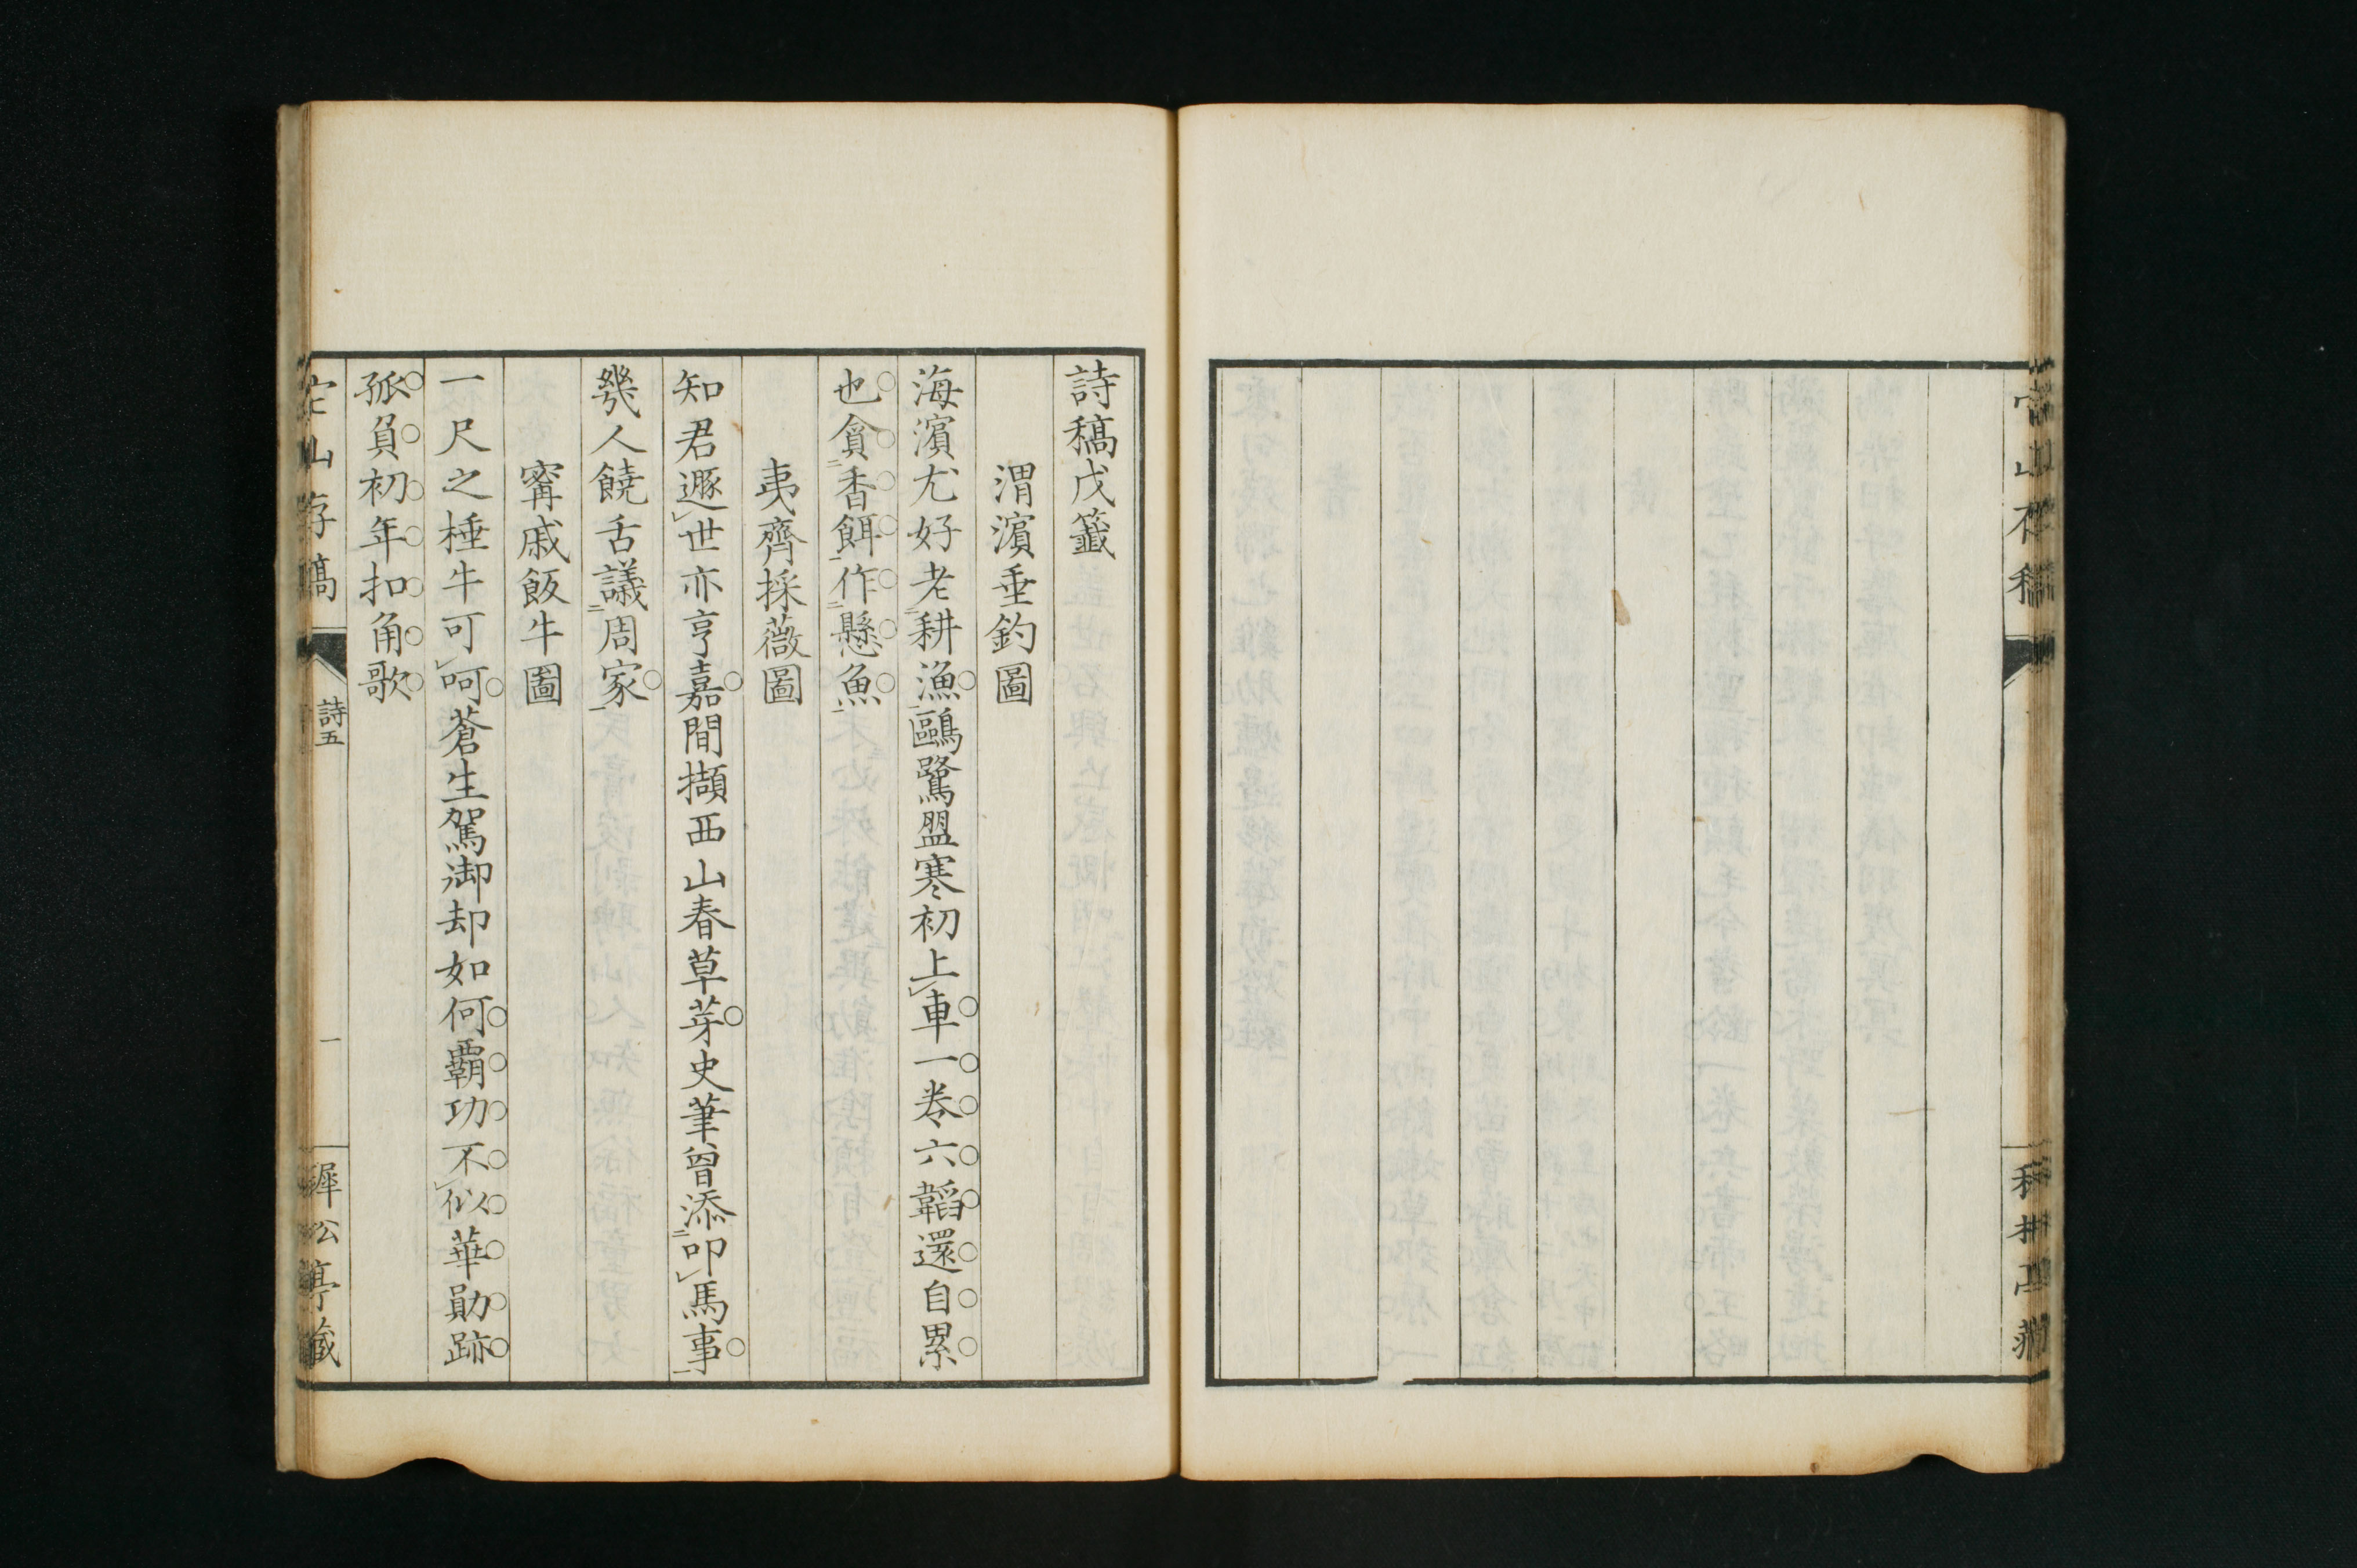 詩稿戊籤
渭濱垂釣圖
海濱尤好老耕漁鷗鷺盟寒初上車一卷六韜還自累
也貪香餌作懸魚
夷齊採薇圖
知君遯世亦亨嘉間擷西山春草芽史筆曾添叩馬事
幾人饒舌議周家
甯戚飯牛圖
一尺之棰牛可呵蒼生駕御却如何覇功不似華勛跡
孤負初年扣角歌
山存稿
詩五
一
公亭藏